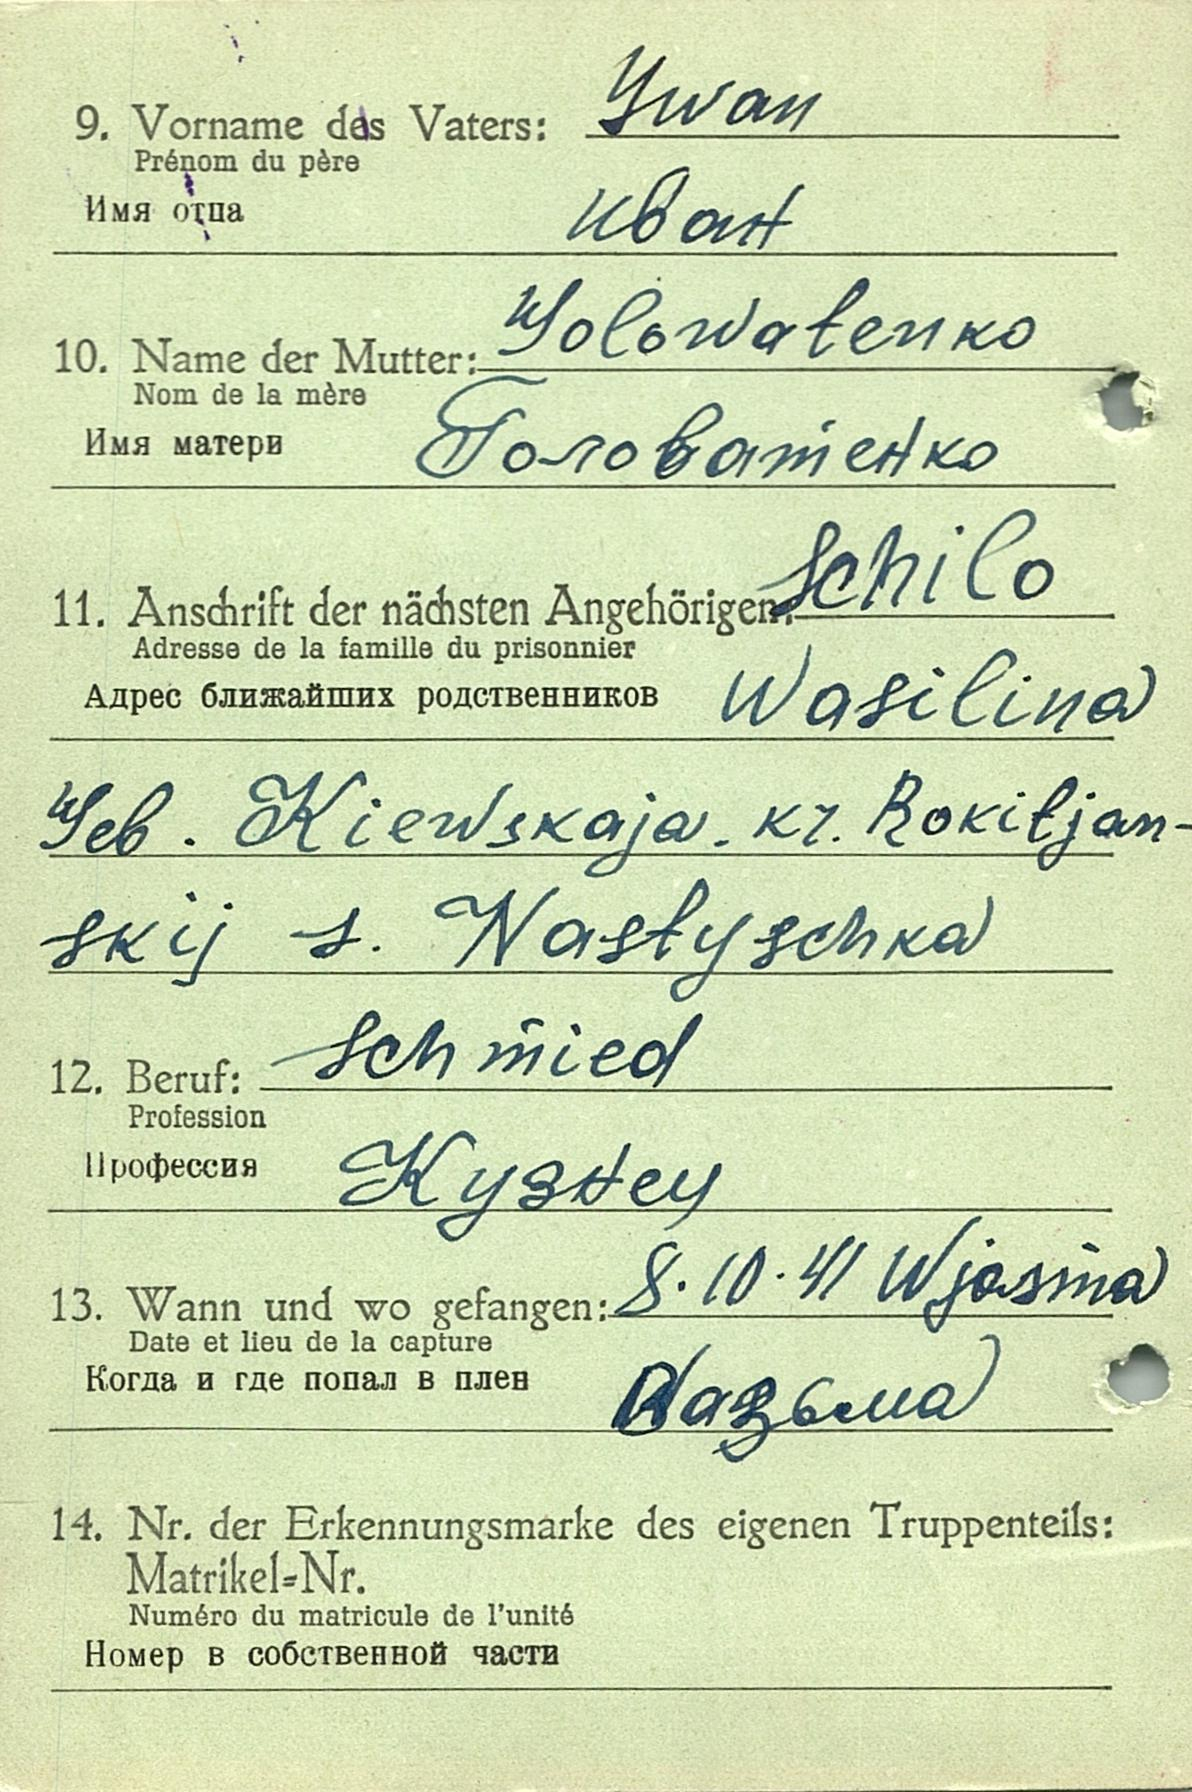 9. Vorname des Vaters: Iwan
Prénom du père
Имя отца Иван
10. Name der Mutter: Golowatenko
Nom de la mère
Имя матери Головатенко
11. Anschrift der nächsten Angehörigen: Schilo
Adresse de la famille du prisonnier
Адрес ближайших родственников Wasilina
Geb. Kiewskaja. kr. Rokitjan-
skij s. Nastyschka
12. Beruf: Schmied
Profession
Профессия Кузнец
13. Wann und wo gefangen: 8.10.41 Wjasma
Date et lieu de la capture
Когда и где попал в плен Вазьма
14. Nr. der Erkennungsmarke des eigenen Truppenteils:
Matrikel=Nr.
Numéro du matricule de l'unité
Номер в собственной части